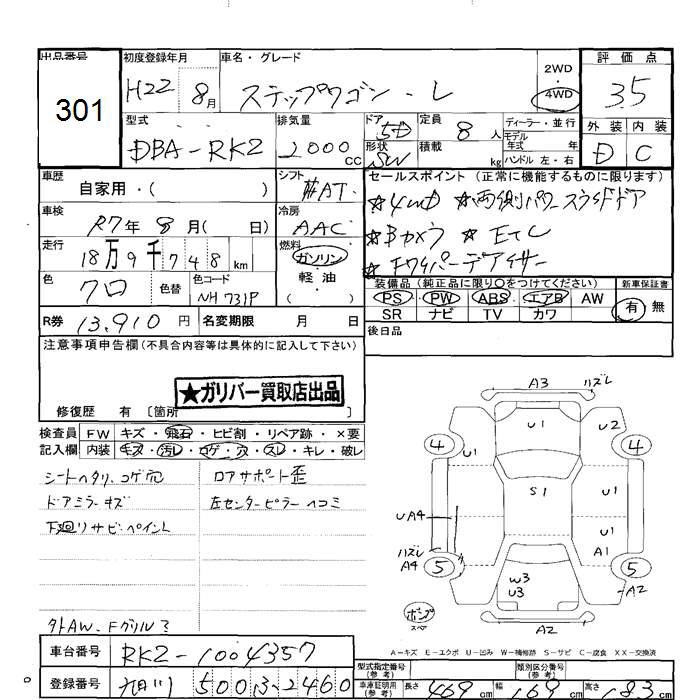 出品番号 初度登録年月 車名・グレード 2WD・4WD 評価点
301 H22 8月 ステップワゴン - L 3.5
型式 排気量 ドア 5D 定員 8人 ディーラー・並行 外装 内装
DBA-RK2 2000cc 形状 SW 積載 kg モデル年式 年 D C
ハンドル 左・右
車歴 自家用・( ) シフト AT セールスポイント (正常に機能するものに限ります)
車検 R7年 8月( 日) 冷房 AAC ☆4WD ☆両側パワースライドドア
走行 18万9千748km 燃料 ガソリン ☆Bカメラ ☆ETC
軽・油 ☆ワイパーデアイサー
色 クロ 色替 色コード NH731P ( )
装備品 (純正品に限り○をつけてください) 新車保証書
PS PW ABS エアB AW 有 無
SR ナビ TV カワ
R券 13,910円 名変期限 月 日 後日品
注意事項申告欄(不具合内容等は具体的に記入して下さい)
★ガリバー買取店出品
修復歴 有 〔箇所
検査員 FW キズ・飛石・ヒビ割・リペア跡・×要
記入欄 内装 キズ・汚レ・コゲ・穴・スレ・キレ・破レ
シートヘタリ、コゲ穴 ロアサポート歪
ドアミラーキズ 左センターピラーヘコミ
下廻りサビ・ペイント
外AW、Fグリル
A3 ハズレ
U1 U2
4 U1 4
S1 U1
UA4 U1
ハズレ A4 A1
5 W3 U3 5
A2
A2
A-キズ E-エクボ U-凹み W-補修跡 S-サビ C-腐食 XX-交換済
車台番号 RK2-1004357
登録番号 旭川 500 2460
型式指定番号(参考) 類別区分番号(参考)
車庫証明用(参考) 長さ 469cm 幅 169cm 高さ 183cm